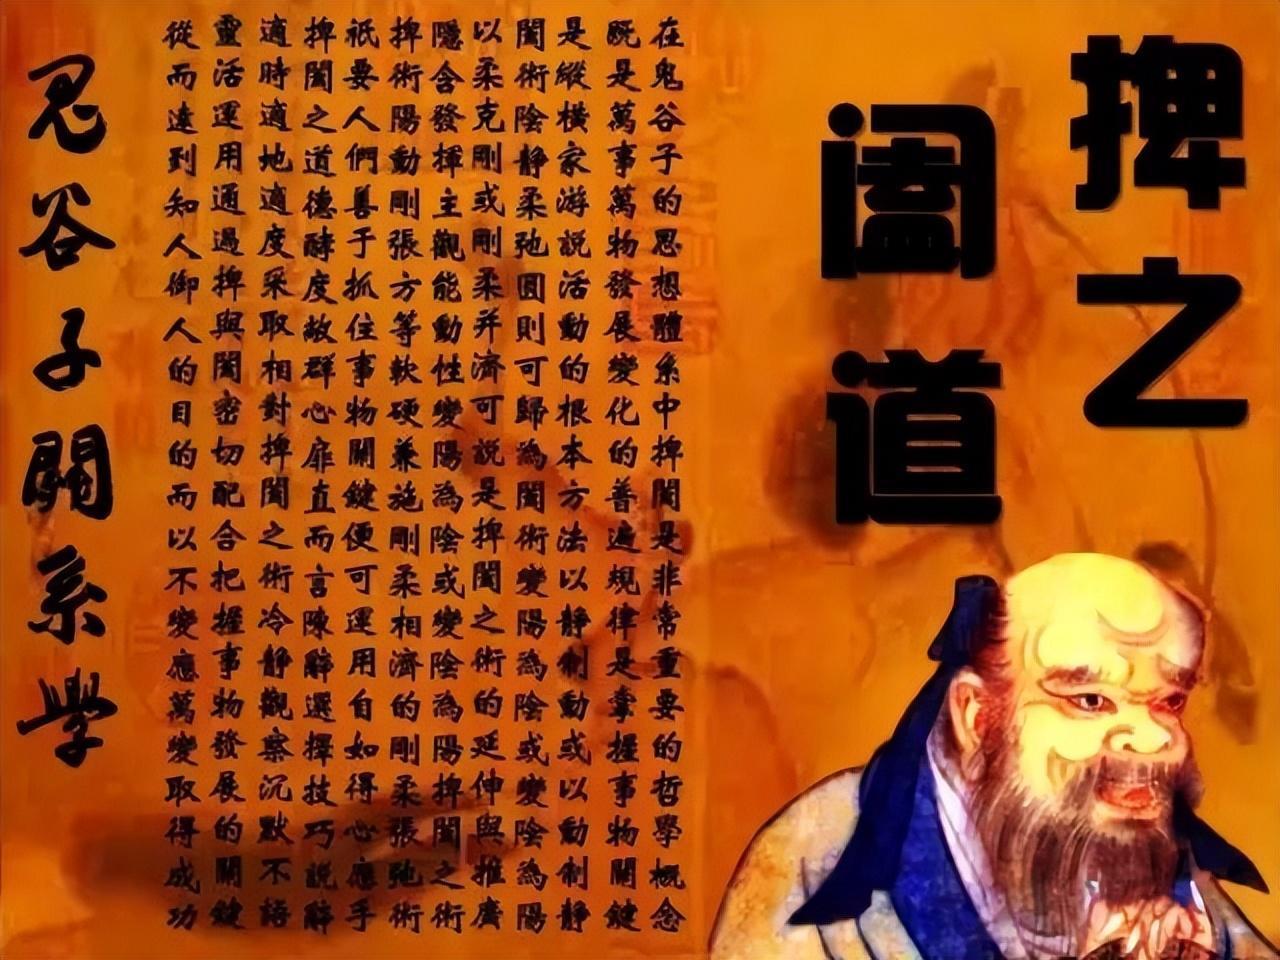 捭阖
之道
在鬼谷子的思想體系中捭闔是非常重要的哲學概念
既是萬事萬物發展變化的普遍規律是掌握事物關鍵
是縱橫家游說活動的根本方法以靜制動或以動制靜
闔術陰靜柔弛圓則可歸為闔術變陽為陰或變陰為陽
以柔克剛或剛柔并濟可說是捭闔之術的延伸與推廣
隱含發揮主觀能動性變陽為陰或變陰為陽捭闔之術
捭術陽動剛張方等軟硬兼施剛柔相濟的剛柔張弛術
祇要人們善于抓住事物關鍵便可運用自如得心應手
捭闔之道德酵度敞群心扉直而言陳辭選擇技巧說辭
適時適地適度采取相對捭闔之術冷靜觀察沉默不語
靈活運用通過捭與闔密切配合把握事物發展的關鍵
從而達到知人御人的目的而以不變應萬變取得成功
鬼谷子關系學